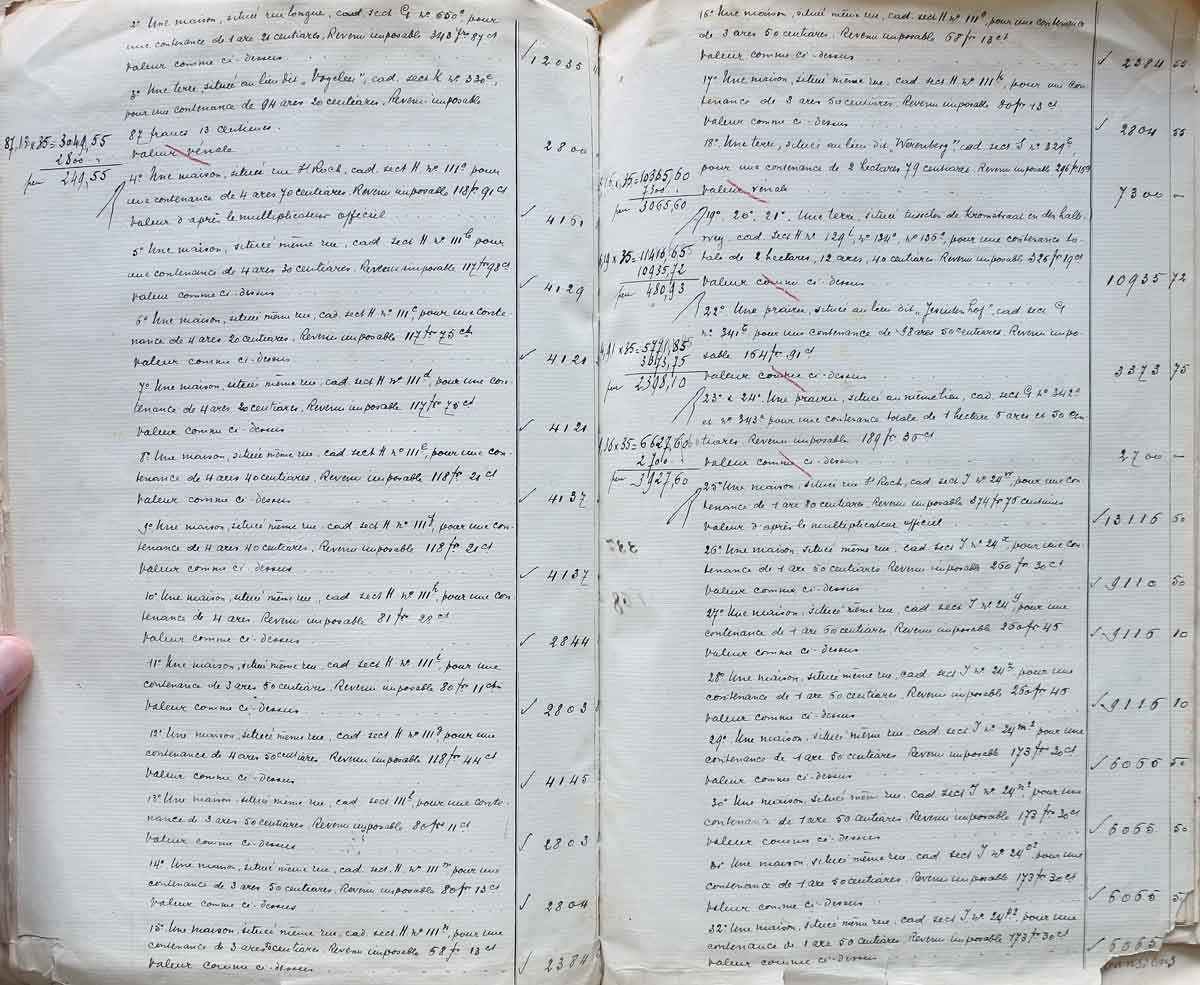 2° Une maison, située rue longue, cad. sect G n° 550c, pour
une contenance de 1 are 21 centiares. Revenu imposable 343 fr 87 ct
Valeur comme ci-dessus ✓ 12035
3° Une terre, située au lieu dit, cad. sect K n° 330c,
pour une contenance de 94 ares 20 centiares. Revenu imposable
87 francs 13 centimes.
87,13 x 35 = 3049,55
2800
249,55
Valeur vénale 2800
4° Une maison, située rue St Roch, cad. sect H n° 111a pour
une contenance de 4 ares 70 centiares. Revenu imposable 118 fr 91 ct
Valeur d'après le multiplicateur officiel ✓ 4161
5° Une maison, située même rue, cad. sect H n° 111b pour
une contenance de 4 ares 30 centiares. Revenu imposable 117 fr 98 ct
Valeur comme ci-dessus ✓ 4129
6° Une maison, située même rue, cad. sect H n° 111c, pour une conte-
nance de 4 ares 20 centiares. Revenu imposable 117 fr 75 ct
Valeur comme ci-dessus ✓ 4121
7° Une maison, située même rue, cad. sect H n° 111d, pour une con-
tenance de 4 ares 20 centiares. Revenu imposable 117 fr 75 ct
Valeur comme ci-dessus ✓ 4121
8° Une maison, située même rue, cad. sect H n° 111e, pour une con-
tenance de 4 ares 40 centiares. Revenu imposable 118 fr 21 ct
Valeur comme ci-dessus ✓ 4137
9° Une maison, située même rue, cad. sect H n° 111, pour une con-
tenance de 4 ares 40 centiares. Revenu imposable 118 fr 21 ct
Valeur comme ci-dessus ✓ 4137
10° Une maison, située même rue, cad. sect H n° 111h, pour une con-
tenance de 4 ares. Revenu imposable 81 fr 28 ct
Valeur comme ci-dessus ✓ 2844
11° Une maison, située même rue, cad. sect H n° 111i, pour une
contenance de 3 ares 50 centiares. Revenu imposable 80 fr 11 ct
Valeur comme ci-dessus ✓ 2803
12° Une maison, située même rue, cad. sect H n° 111, pour une
contenance de 4 ares 50 centiares Revenu imposable 118 fr 44 ct
Valeur comme ci-dessus ✓ 4145
13° Une maison, située même rue, cad. sect 111l, pour une conte-
nance de 3 ares 50 centiares. Revenu imposable 80 fr 11 ct
Valeur comme ci-dessus ✓ 2803
14° Une maison, située même rue, cad. sect H n° 111m pour une
contenance de 3 ares 50 centiares. Revenu imposable 80 fr 13 ct
Valeur comme ci-dessus ✓ 2804
15° Une maison, située même rue, cad. sect H n° 111n, pour une
contenance de 3 ares 50 centiares. Revenu imposable 68 fr 13
Valeur comme ci-dessus ✓ 2384
16° Une maison, située même rue, cad. sect H n° 111o, pour une contenance
de 3 ares 50 centiares. Revenu imposable 68 fr 13 ct
Valeur comme ci-dessus ✓ 2384 55
17° Une maison, située même rue, cad. sect H n° 111k, pour une con
tenance de 3 ares 50 centiares. Revenu imposable 80 fr 13 ct
Valeur comme ci-dessus ✓ 2804 55
18° Une terre, située au lieu dit, cad. sect J n° 329
pour une contenance de 2 hectares 79 centiares. Revenu imposable 296 fr 16 ct
,16 x 35 = 10365,60
7300
3065,60
Valeur vénale 7300 –
19°. 20°. 21°. Une terre, située tusschen de Kromstraat en den hall-
weg, cad. sect H n° 129, n° 134, n° 135, pour une contenance to-
tale de 2 hectares, 12 ares, 40 centiares. Revenu imposable 326 fr 19 ct
,19 x 35 = 11416,65
10935,72
480,93
Valeur comme ci-dessus 10935 72
22° Une prairie, située au lieu dit, cad sect G
n° 341, pour une contenance de 98 ares 50 centiares. Revenu impo-
sable 164 fr 91 ct
,91 x 35 = 5771,85
3373,75
2398,10
Valeur comme ci-dessus 3373 75
23° & 24°. Une prairie, située au même lieu, cad. sect G n° 342
et n° 343 pour une contenance totale de 1 hectare 5 ares et 50 cen
tiares. Revenu imposable 189 fr 36 ct
,36 x 35 = 6627,60
2700
3927,60
Valeur comme ci-dessus 2700 –
25° Une maison, située rue St Roch, cad. sect J n° 24w, pour une con
tenance de 1 are 80 centiares. Revenu imposable 374 fr 75 centimes
Valeur d'après le multiplicateur officiel ✓ 13116 50
26° Une maison, située même rue, cad. sect J n° 24x, pour une con-
tenance de 1 are 50 centiares Revenu imposable 260 fr 30 ct
Valeur comme ci-dessus ✓ 9110 50
27° Une maison, située même rue, cad. sect J n° 24y pour une
contenance de 1 are 50 centiares. Revenu imposable 260 fr 45
Valeur comme ci-dessus ✓ 9115 10
28° Une maison, située même rue, cad. sect J n° 24z pour une
contenance de 1 are 50 centiares. Revenu imposable 260 fr 45
Valeur comme ci-dessus ✓ 9115 10
29° Une maison, située même rue, cad. sect J n° 24m2, pour une
contenance de 1 are 50 centiares. Revenu imposable 173 fr 30 ct
Valeur comme ci-dessus ✓ 6065 50
30° Une maison, située même rue, cad. sect J n° 24n2 pour une
contenance de 1 are 50 centiares. Revenu imposable 173 fr 30 ct
Valeur comme ci-dessus ✓ 6065 50
31° Une maison, située même rue, cad. sect J n° 24o2, pour une
contenance de 1 are 50 centiares. Revenu imposable 173 fr 30 ct
Valeur comme ci-dessus ✓ 6065 50
32° Une maison, située même rue, cad. sect J n° 24p2, pour une
contenance de 1 are 50 centiares. Revenu imposable 173 fr 30 ct
Valeur comme ci-dessus ✓ 6065